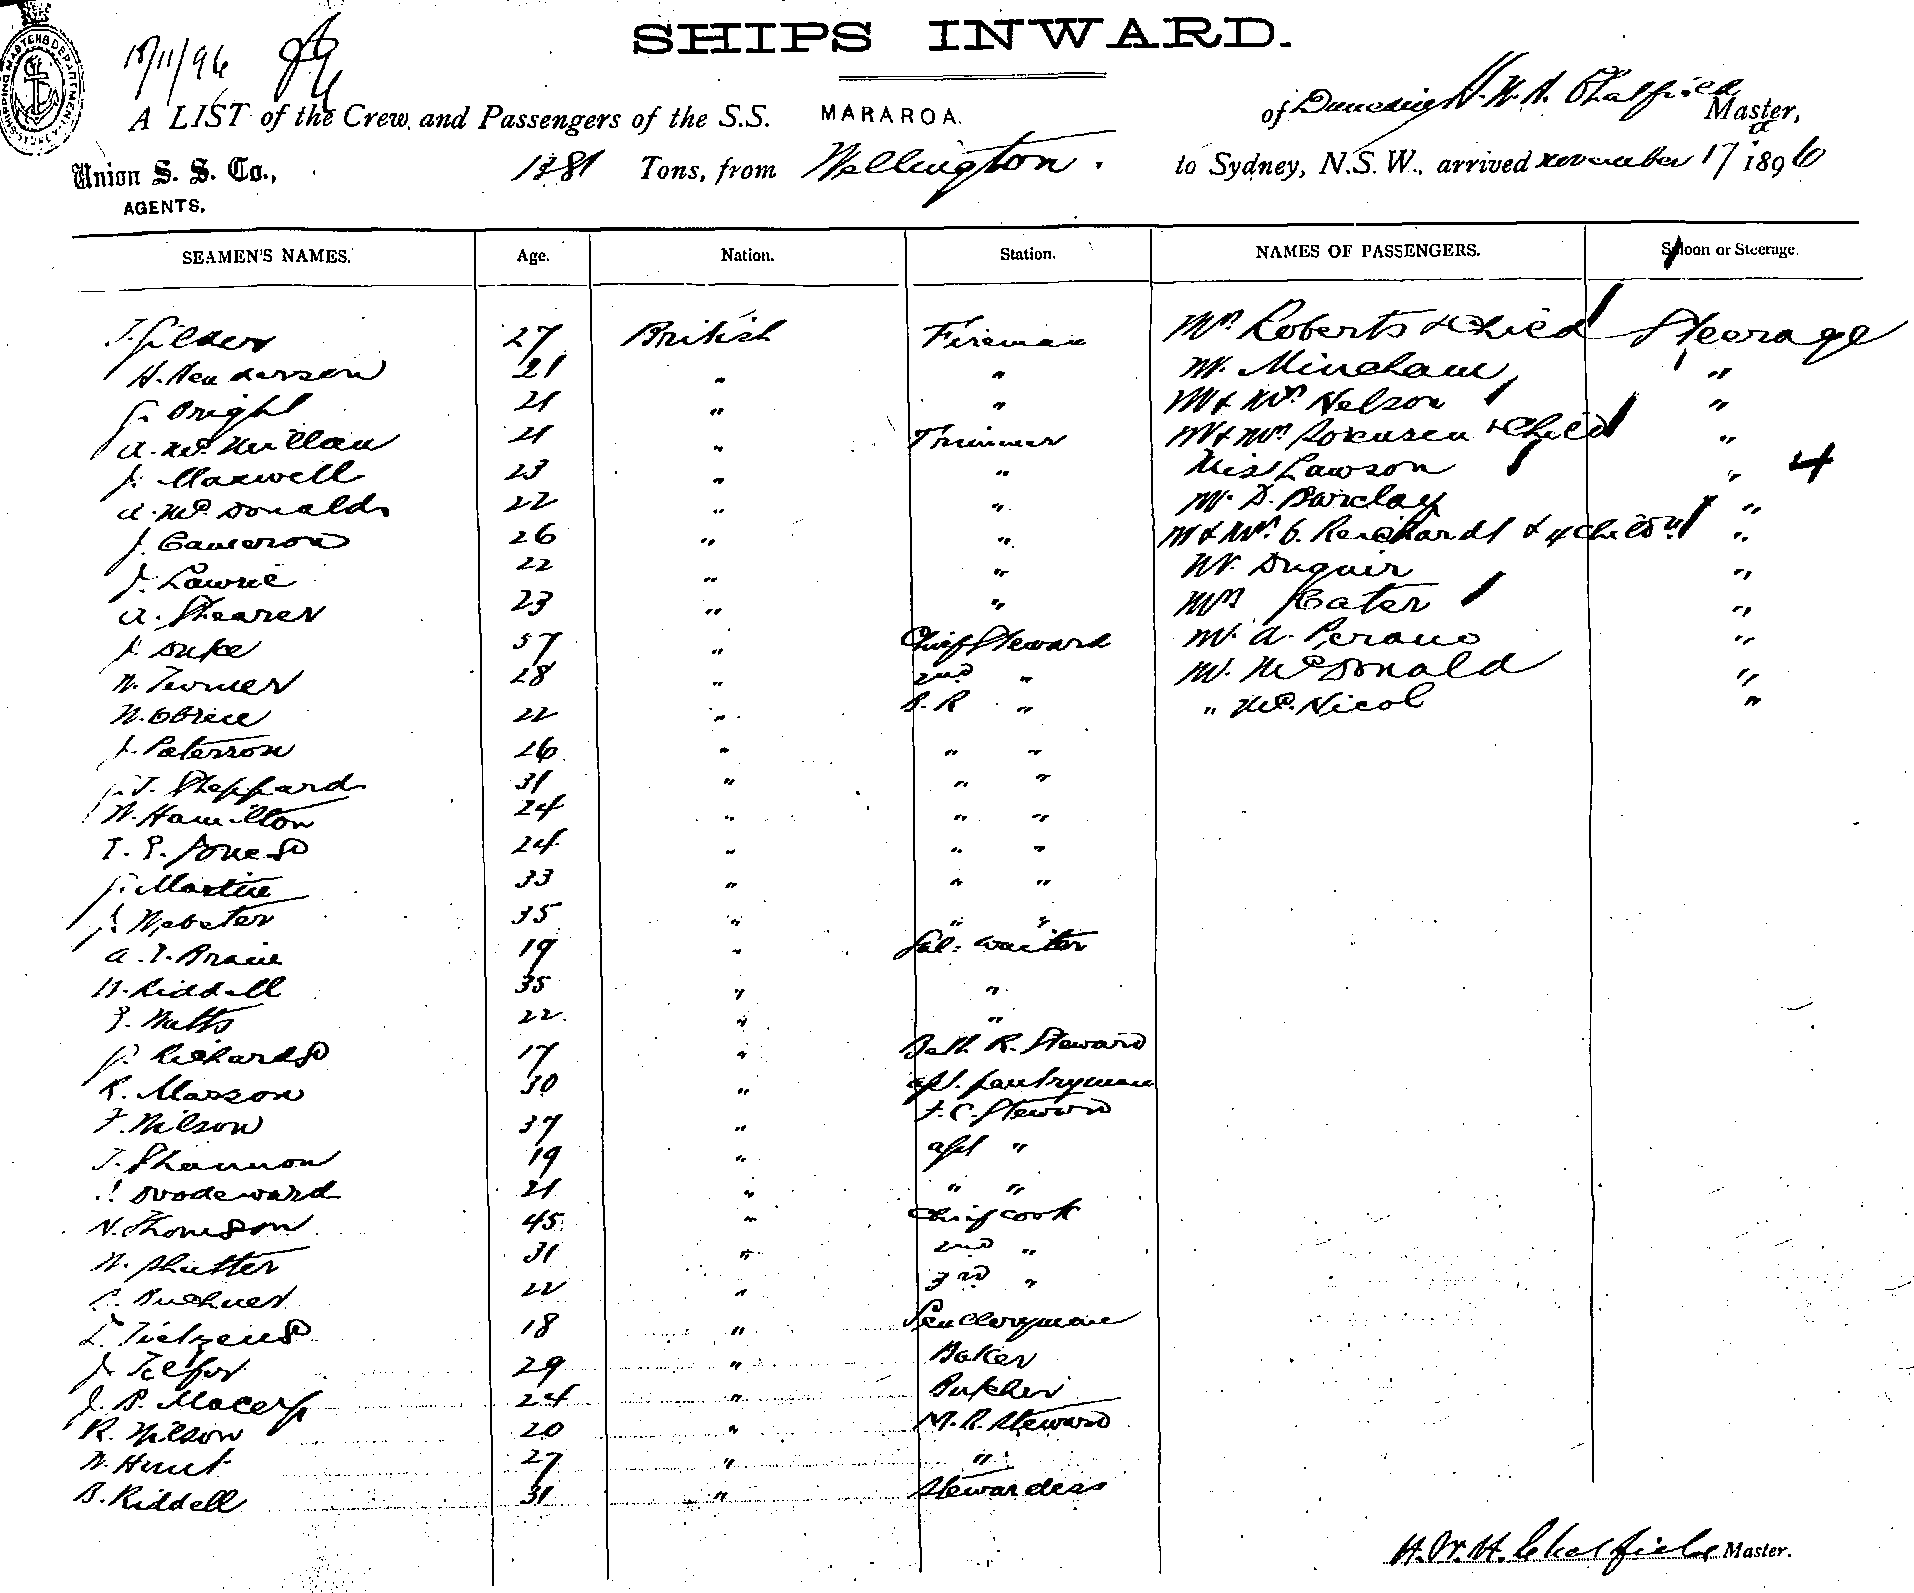 SHIPS INWARD.
18/11/96
A LIST of the Crew and Passengers of the S.S. MARAROA. of Dunedin, H. W. H. Chatfield Master,
Union S. S. Co., AGENTS. 1381 Tons, from Wellington. to Sydney, N.S.W., arrived november 17 1896
SEAMEN'S NAMES. Age. Nation. Station. NAMES OF PASSENGERS. Saloon or Steerage.
27 British Fireman Mrs Roberts & Child Steerage
H. Henderson 21 " " Mr. Mincham "
G. Bright 21 " " Mr & Mrs Nelson "
A. McMillan 21 " Trimmer Mr & Mrs Sorensen & Child "
J. Maxwell 23 " " Miss Lawson " 4
A. McDonald 22 " " Mr. D. Barclay "
J. Cameron 26 " " Mr & Mrs C. Reichardt & 4 Childn "
J. Lawrie 22 " " Mr. Duguir "
A. Shearer 23 " " Mrs Cater "
J. Duke 57 " Chief Steward Mr. A. Perano "
W. Turner 28 " 2nd " Mr. McDonald "
W. OBrien 22 " B. R " " McNicol "
J. Paterson 26 " " "
G. T. Sheppard 31 " " "
W. Hamilton 24 " " "
T. E. Jones 24 " " "
G. Martin 33 " " "
J. Webster 35 " " "
19 " Sal: Waiter
H. Riddell 35 " "
E. Watts 22 " "
G. Richards 17 " Bath R. Steward
R. Masson 30 " asst. pantryman
F. Wilson 37 " F. C. Steward
T. Shannon 19 " asst "
J. Woodeward 21 " " "
N. Thomson 45 " Chief cook
W. Shutter 31 " 2nd "
22 " 3rd "
18 " Sculleryman
J. Telfor 29 " Baker
24 " Butcher
R. Wilson 20 " M. R. Steward
W. Hunt 27 " "
B. Riddell 31 " Stewardess
H. W. H. Chatfield Master.